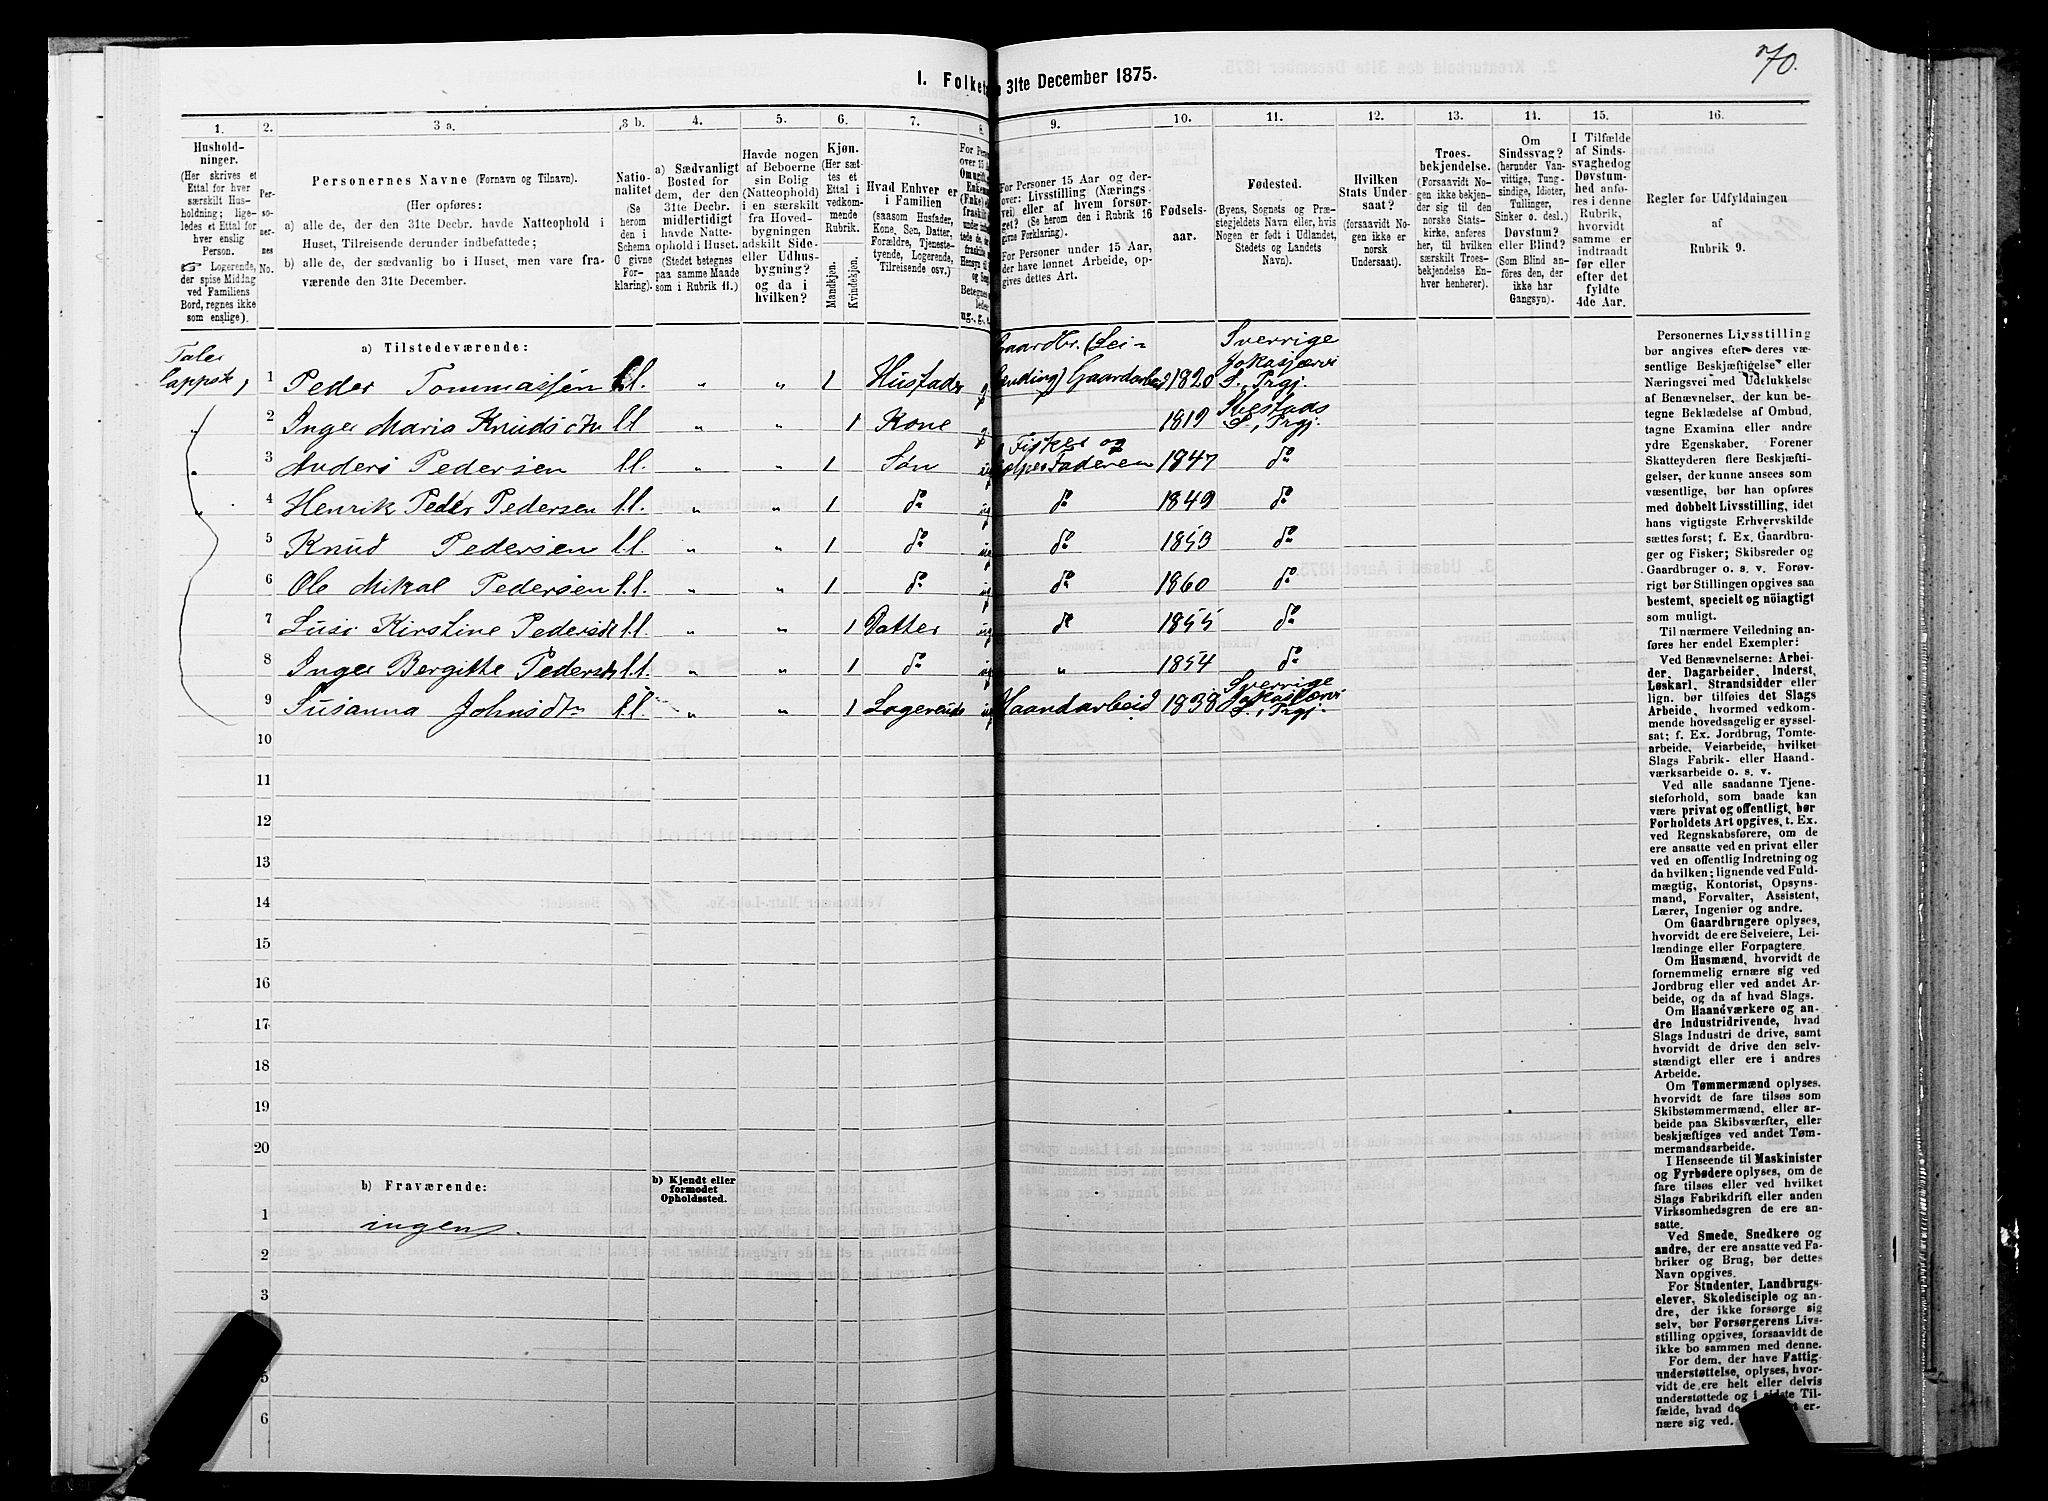 70.
I. Folket 31te December 1875.
1. 2. 3 a. 3 b. 4. 5. 6. 7. 8. 9. 10. 11. 12. 13. 14. 15. 16.
Hushold-
ninger.
(Her skrives et
Ettal for hver
særskilt Hus-
holdning; lige-
ledes et Ettal for
hver enslig
Person.
Logerende,
der spise Middag
ved Familiens
Bord, regnes ikke
som enslige).
Per-
so-
ner-
nes
No.
Personernes Navne (Fornavn og Tilnavn).
(Her opføres:
a) alle de, der den 31te Decbr. havde Natteophold i
Huset, Tilreisende derunder indbefattede;
b) alle de, der sædvanlig bo i Huset, men vare fra-
værende den 31te December.
Natio-
nalitet
(Se
herom
den i
Schema
O givne
For-
klaring).
a) Sædvanligt
Bosted for
dem, der den
31te Decbr.
midlertidigt
havde Natte-
ophold i Huset.
(Stedet betegnes
paa samme Maade
som i Rubrik 11.)
Havde nogen
af Beboerne
sin Bolig
(Natteophold)
i en særskilt
fra Hoved-
bygningen
adskilt Side-
eller Udhus-
bygning?
og da i
hvilken?
Kjøn.
(Her sæt-
tes et
Ettal i
vedkom-
mende
Rubrik.
Mandkjøn.
Kvindekjøn.
Hvad Enhver er
i Familien
(saasom Husfader,
Kone, Søn, Datter,
Forældre, Tjeneste-
tyende, Logerende,
Tilreisende osv.)
For Personer 15 Aar og der-
over: Livsstilling (Nærings-
vei) eller af hvem forsør-
get? (Se herom den i Rubrik 16
givne Forklaring.)
For Personer under 15 Aar,
der have lønnet Arbeide, op-
gives dettes Art.
Fødsels-
aar.
Fødested.
(Byens, Sognets og Præ-
stegjeldets Navn eller, hvis
Nogen er født i Udlandet,
Stedets og Landets
Navn).
Hvilken
Stats Under-
saat?
(forsaavidt No-
gen ikke er
norsk
Undersaat).
Troes-
bekjendelse.
(Forsaavidt No-
gen ikke bekjen-
der sig til den
norske Stats-
kirke, anføres
her, til hvilken
særskilt Troes-
bekjendelse En-
hver henhører).
Om
Sindssvag?
(herunder Van-
vittige, Tung-
sindige, Idioter,
Tullinger,
Sinker o. desl.)
Døvstum?
eller Blind?
(Som Blind an-
føres den, der
ikke har
Gangsyn).
I Tilfælde
af Sinds-
svaghed og
Døvstum-
hed anfø-
res i denne
Rubrik,
hvorvidt
samme er
indtraadt
før eller
efter det
fyldte
4de Aar.
Regler for Udfyldningen
af
Rubrik 9.
a) Tilstedeværende:
1 Peder Tommassen l.l. „ „ 1 Husfader Gaardbr. (Lei-lending) Gaardarbeid 1820 Sverrige Jokasjervi S., Prgj.
„ 2 Inger Maria Knudsdtr l.l „ „ 1 Kone 1819 Ibestads S., Prgj.
„ 3 Anders Pedersen l.l. „ „ 1 Søn Fisker og hjelper Faderen 1847 do
„ 4 Henrik Peder Pedersen l.l. „ „ 1 do do 1849 do
5 Knud Pedersen l.l. „ „ 1 do do 1853 do
6 Ole Mikal Pedersen l.l. „ „ 1 do do 1860 do
7 Lusi Kirstine Pedersdt l.l. „ „ 1 Datter do 1855 do
8 Inger Bergitte Pedersdt l.l. „ „ 1 do „ 1854 do
9 Susanna Johnsdtr l.l. „ „ 1 Logerende Haandarbeid 1838 Sverrige Jokasjervi S., Prgj.
10
11
12
13
14
15
16
17
18
19
20
b) Fraværende:
b) Kjendt eller
formodet
Opholdssted.
1 ingen.
2
3
5
6
Personernes Livsstilling
bør angives efter deres væ-
sentlige Beskjæftigelse eller
Næringsvei med Udelukkelse
af Benævnelser, der kun be-
tegne Beklædelse af Ombud,
tagne Examina eller andre
ydre Egenskaber. Forener
Skatteyderen flere Beskjæfti-
gelser, der kunne ansees som
væsentlige, bør han opføres
med dobbelt Livsstilling, idet
hans vigtigste Erhvervskilde
sættes først; f. Ex. Gaardbru-
ger og Fisker; Skibsreder og
Gaardbruger o. s. v. Forøv-
rigt bør Stillingen opgives saa
bestemt, specielt og nöiagtigt
som muligt.
Til nærmere Veiledning an-
føres her endel Exempler:
Ved Benævnelserne: Arbei-
der, Dagarbeider, Inderst,
Løskarl, Strandsidder eller
lign. bør tilføies det Slags
Arbeide, hvormed vedkom-
mende hovedsagelig er syssel-
sat; f. Ex. Jordbrug, Tomte-
arbeide, Veiarbeide, hvilket
Slags Fabrik- eller Haand-
værksarbeide o. s. v.
Ved alle saadanne Tjene-
steforhold, som baade kan
være privat og offentligt, bør
Forholdets Art opgives, t. Ex.
ved Regnskabsførere, om de
ere ansatte ved en privat eller
ved en offentlig Indretning og
da hvilken; lignende ved Fuld-
mægtig, Kontorist, Opsyns-
mand, Forvalter, Assistent,
Lærer, Ingeniør og andre.
Om Gaardbrugere oplyses,
hvorvidt de ere Selveiere, Lei-
lændinge eller Forpagtere.
Om Husmænd, hvorvidt de
fornemmelig ernære sig ved
Jordbrug eller ved andet Ar-
beide, og da af hvad Slags.
Om Haandværkere og an-
dre Industridrivende, hvad
Slags Industri de drive, samt
hvorvidt de drive den selv-
stændigt eller ere i andres
Arbeide.
Om Tømmermænd oplyses,
hvorvidt de fare tilsøs som
Skibstømmermænd, eller ar-
beide paa Skibsværfter, eller
beskjæftiges ved andet Tøm-
mermandsarbeide.
I Henseende til Maskinister
og Fyrbødere oplyses, om de
fare tilsøs eller ved hvilket
Slags Fabrikdrift eller anden
Virksomhedsgren de ere an-
satte.
Ved Smede, Snedkere og
andre, der ere ansatte ved Fa-
briker og Brug, bør dettes
Navn opgives.
For Studenter, Landbrugs-
elever, Skoledisciple og an-
dre, der ikke forsørge sig
selv, bør Forsørgerens Livs-
stilling opgives, forsaavidt de
ikke bo sammen med denne.
For dem, der have Fattig-
understøttelse, oplyses, hvor-
vidt de ere helt eller delvis
understøttede og i sidste Til-
fælde, hvad de er-
nære sig ved.